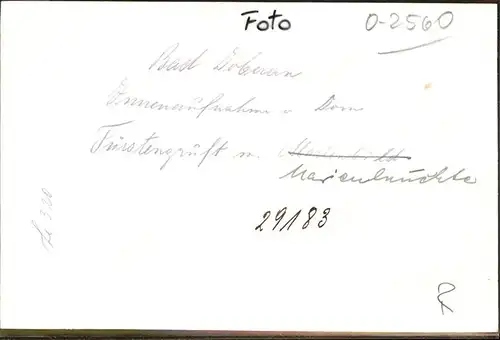 Foto
O-2560
Bad Doberan
Innenaufnahme v Dom
Fürstengruft m. Marienbild
Marienleuchte
29183